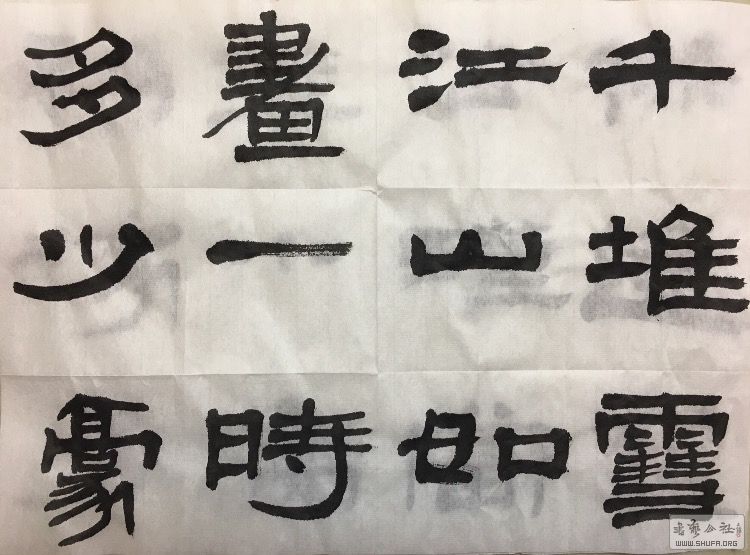 千堆雪
江山如
畫一時
多少豪
WWW.SHUFA.ORG